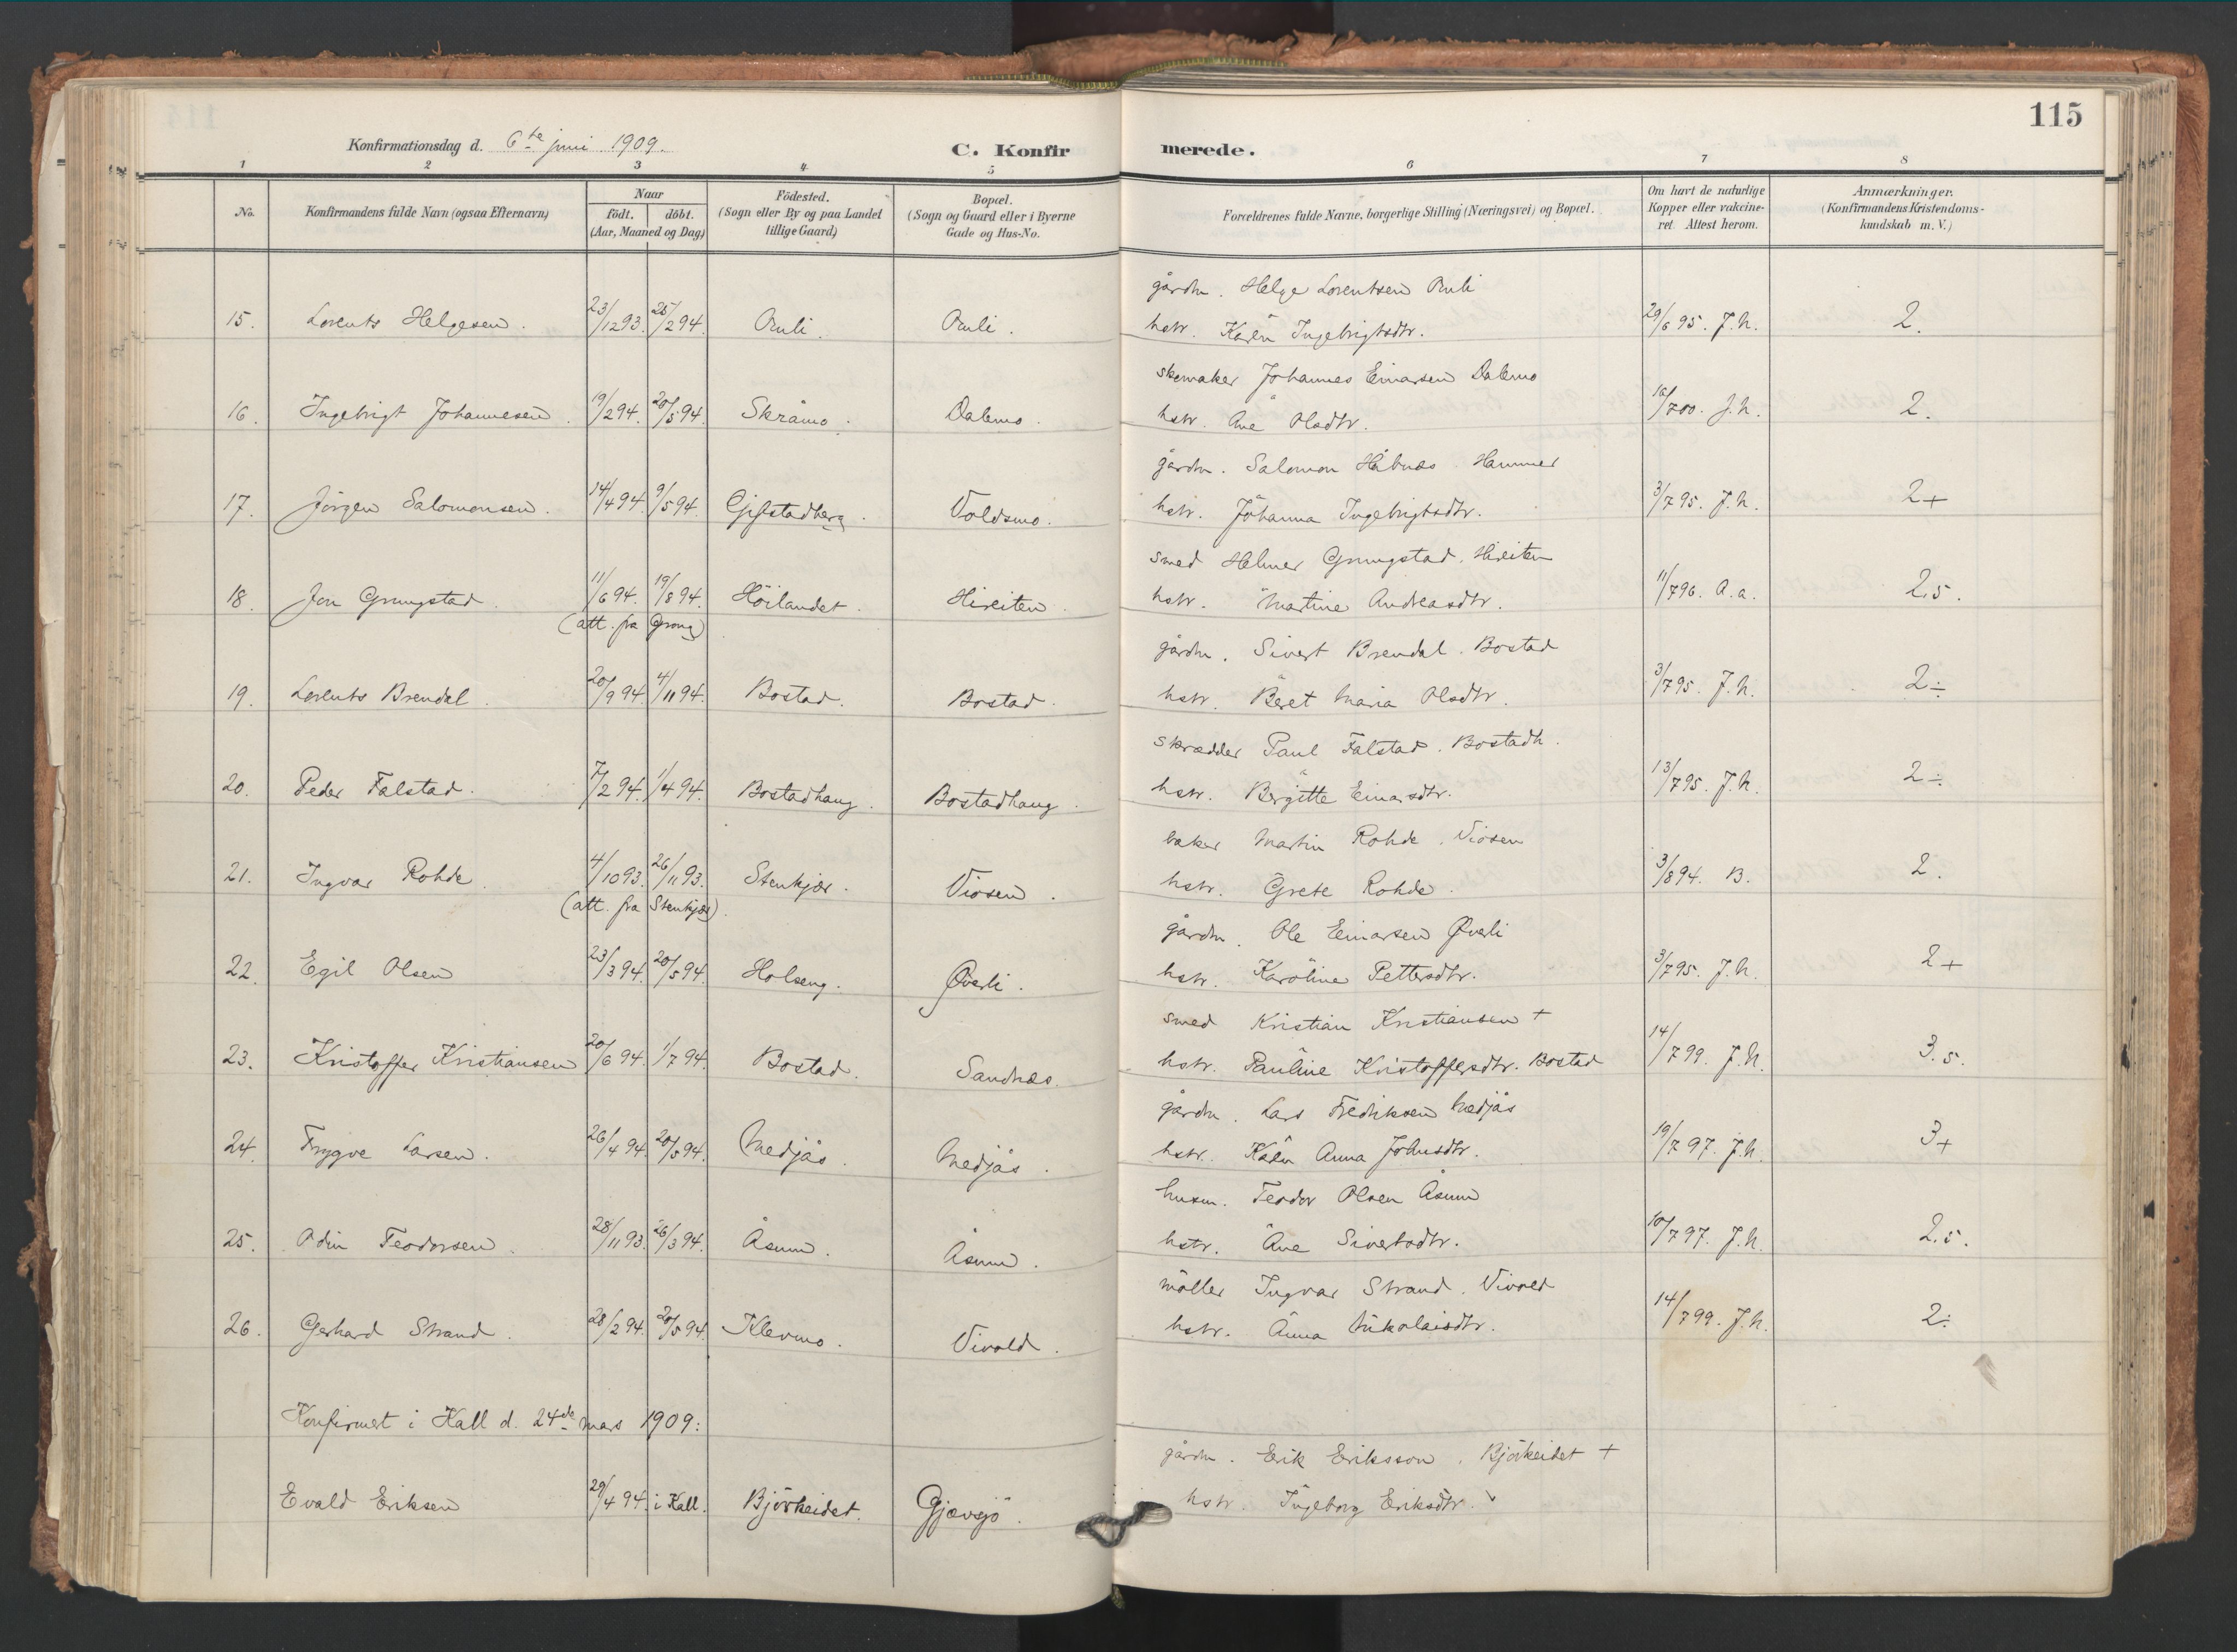 115
Konfirmationsdag d. 6te juni 1909.
C. Konfirmerede.
1 2 3 4 5 6 7 8
No. Konfirmandens fulde Navn (ogsaa Efternavn) Naar födt. döbt. (Aar, Maaned og Dag) Födested. (Sogn eller By og paa Landet tillige Gaard) Bopæl. (Sogn og Gaard eller i Byerne Gade og Hus-No. Forældrenes fulde Navne, borgerlige Stilling (Næringsvei) og Bopæl. Om havt de naturlige Kopper eller vakcineret. Attest herom. Anmærkninger. (Konfirmandens Kristendomskundskab m. V.)
gårdm. Helge Lorentsen Ruli
15. Lorents Helgesen. 23/12 93. 25/2 94. Ruli. Ruli. hstr. Karen Ingebrigtsdtr. 29/6 95. J.N. 2.
skomaker Johannes Einarsen Dalemo
16. Ingebrigt Johannesen. 19/2 94. 20/5 94. Skråmo. Dalemo. hstr. Ane Olsdtr. 16/7 00. J.N. 2.
gårdm. Salomon Håbnæs. Hammer
17. Jörgen Salomonsen. 14/4 94. 9/5 94. Gifstadberg. Voldsmo. hstr. Johanna Ingebrigtsdtr. 3/7 95. J.N. 2+
smed Helmer Grungstad. Hireiten
18. Jon Grungstad. 11/6 94. 19/8 94. Höilandet. Hireiten. hstr. Martine Andreasdtr. 11/7 96. A.a. 2.5.
(att. fra Grong)
gårdm. Sivert Brendal. Bostad
19. Lorents Brendal. 20/9 94. 4/11 94. Bostad. Bostad. hstr. Beret Maria Olsdtr. 3/7 95. J.N. 2÷
skrædder Paul Falstad. Bostadh.
20. Peder Falstad. 7/2 94. 1/4 94. Bostadhaug. Bostadhaug. hstr. Bergitte Einarsdtr. 13/7 95. J.N. 2÷
baker Martin Rohde. Viosen
21. Ingvar Rohde. 4/10 93. 26/11 93. Stenkjær. Viosen. hstr. Grete Rohde. 3/8 94. B. 2.
(att. fra Stenkjær).
gårdm. Ole Einarsen Øverli
22. Egil Olsen 23/3 94. 20/5 94. Holseng. Øverli. hstr. Karoline Pettersdtr. 3/7 95. J.N. 2+
smed Kristian Kristiansen +
23. Kristoffer Kristiansen 20/6 94. 1/7 94. Bostad. Sandnæs. hstr. Pauline Kristoffersdtr. Bostad 14/7 99. J.N. 3.5.
gårdm. Lars Fredriksen Nedjås
24. Trygve Larsen. 26/4 94. 20/5 94. Nedjås. Nedjås. hstr. Karen Anna Johnsdtr. 19/7 97. J.N. 3+
husm. Teodor Olsen Åsum
25. Odin Teodorsen. 28/11 93. 26/3 94. Åsum. Åsum. hstr. Ane Sivertsdtr. 10/7 97. J.N. 2.5.
möller Ingvar Strand. Vivold
26. Gerhard Strand. 28/2 94. 20/5 94. Klevmo. Vivold. hstr. Anna Nikolaisdtr. 14/7 99. J.N. 2÷
Konfirmert i Kall d. 24de mars 1909:
gårdm. Erik Eriksson. Björkeidet +
Evald Eriksen 29/4 94. i Kall. Björkeidet. Gjævsjö. hstr. Ingeborg Eriksdtr.